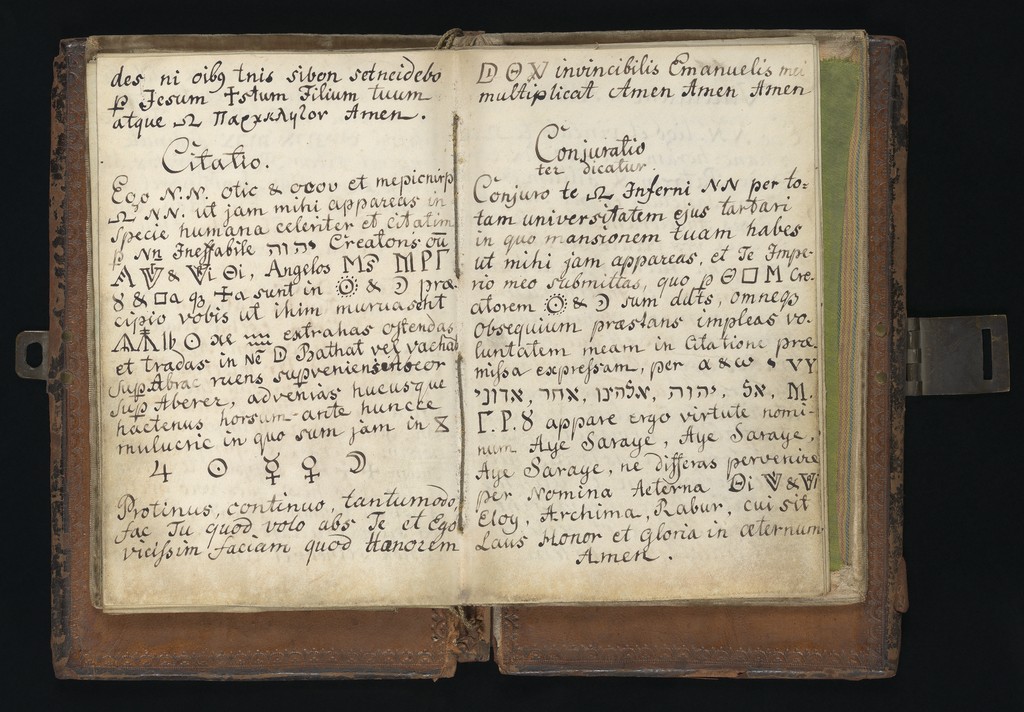 des ni oibq tnis sibon sotneidebo
p Jesum ☩stum Filium tuum
atque Ω Amen.
Citatio.
Ego N.N. otic & et
Ω NN. ut jam mihi appareas in
specie humana celeriter et citatim
p Nn Ineffabile יהוה Creatoris
& Θi, Angelos
☿ & □a ☩a sunt in ☉ & ☽ præ
cipio vobis ut ihim
☉ xe extrahas ostendas
et tradas in Bathat vel vachat
sup Abrac ruens superveniens
sup Aberer, advenias hucusque
hactenus horsum ante huncce
mulucric in quo sum jam in
♃ ☉ ☿ ♀ ☽
Protinus, continuo, tantumodo
fac Tu quod volo abs Te et Ego
vicissim faciam quod
D Θ invincibilis Emanuelis mei
multiplicat Amen Amen Amen
Conjuratio
ter dicatur.
Conjuro te Ω Inferni NN per to-
tam universitatem ejus tartari
in quo mansionem tuam habes
ut mihi jam appareas, et Te Impe-
rio meo submittas, quo p Θ □ M Cre-
atorem ☉ & ☽ sum omneq
Obsequium præstans impleas vo-
luntatem meam in Citatione præ-
missa expressam, per α & ω VY
אדוני, אחד, אלהינו, יהוה, אל, M.
Γ.P.☿ appare ergo virtute nomi-
num Aye Saraye, Aye Saraye,
Aye Saraye, ne differas pervenire
per Nomina Aeterna Θi &
Eloy, Archima, Rabur, cui sit
Laus Honor et Gloria in æternum
Amen.